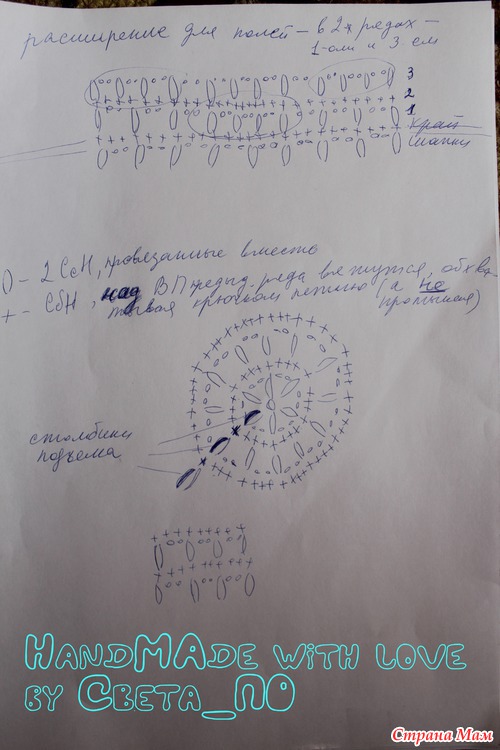 расширение для полей – в 2х рядах –
1-ом и 3 ем
3
2
1
край
шапки
() – 2 СсН, провязанные вместе
+ – СбН, над ВП предыд. ряда вяжутся, обхва-
тывая крючком петлю (а не
промышляя)
столбики
подъема
HANDMADE WITH LOVE
BY СВЕТА_ПО
Страна Мам